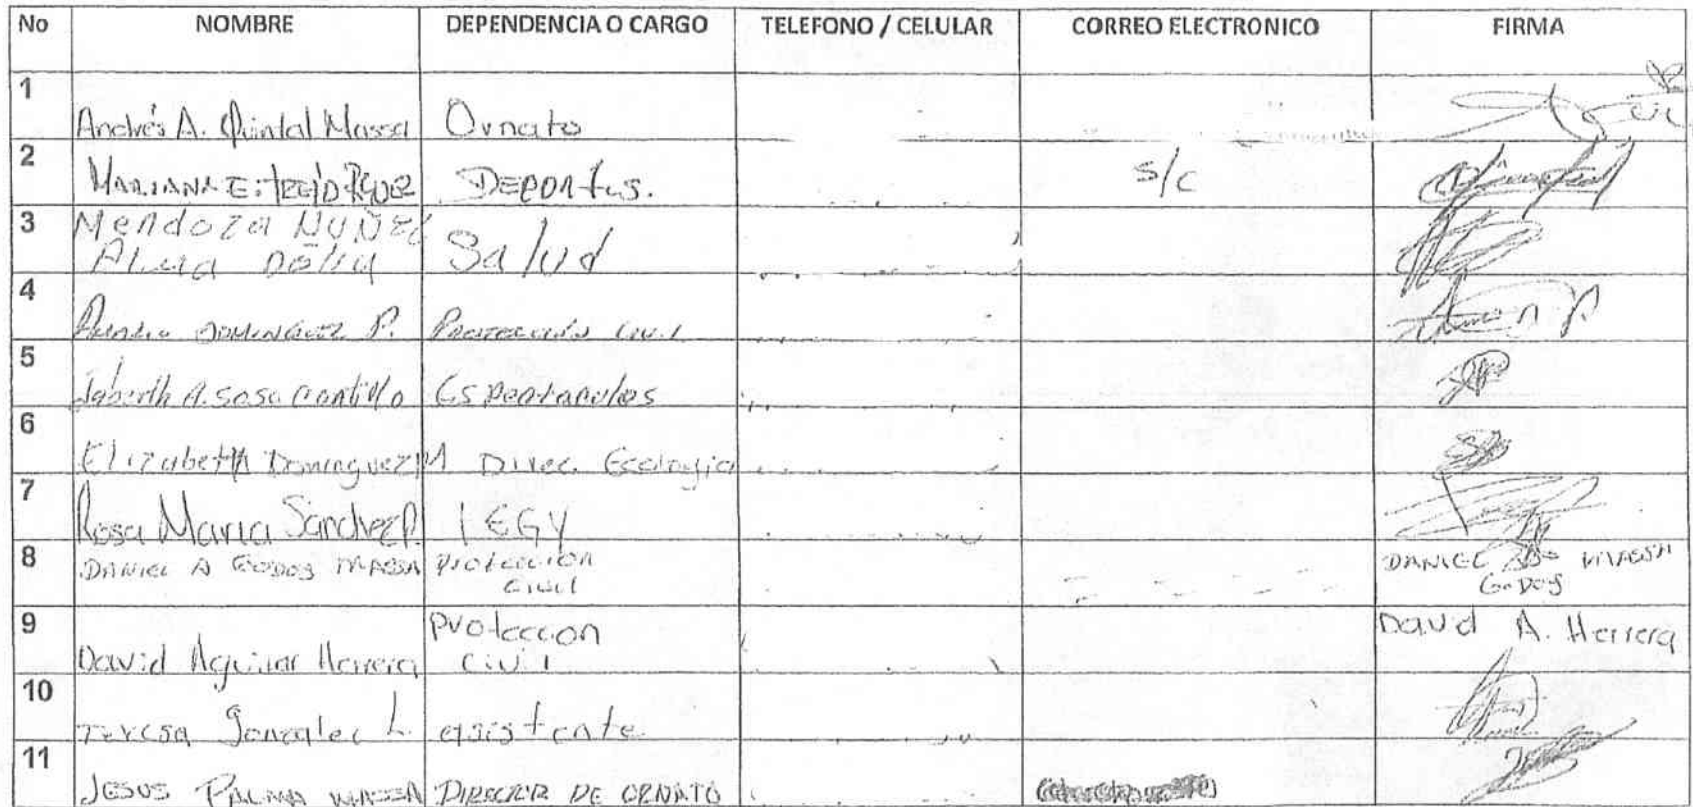 No NOMBRE DEPENDENCIA O CARGO TELEFONO / CELULAR CORREO ELECTRONICO FIRMA
1 Andrés A. Quintal Massa Ornato
2 MARIANA E. DEPORTES. s/c
3 Mendoza NUÑEZ Salud
4 DOMINGUEZ P. PROTECCIÓN CIVIL
5 A. Sosa Espectaculos
6 Elizabeth Dominguez M. Direc. Ecologia
7 Rosa Maria Sanchez P. IEGY
8 DANIEL A GODOY MASSA Proteccion DANIEL MASSA
Civil GODOY
9 Proteccion David A. Herrera
David Aguilar Herrera Civil
10 Teresa Gonzalez L. asistente
11 JESUS PALMA MASSA DIRECTOR DE ORNATO